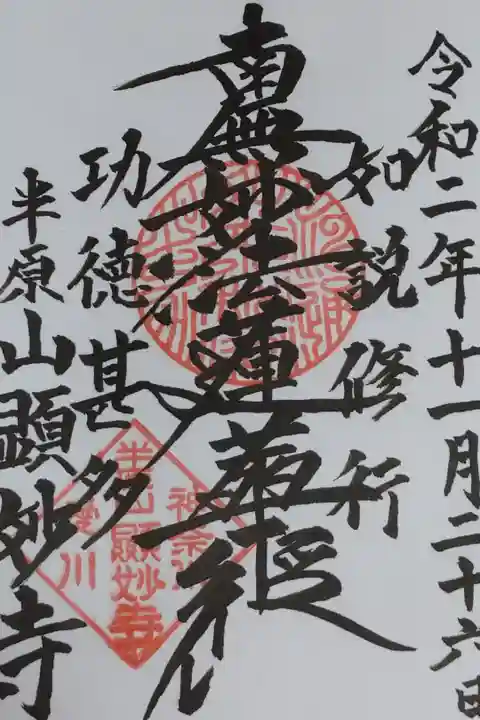 令和二年十一月二十六日
如説修行
南無妙法蓮華経
功徳甚多
半原山顕妙寺
半原山顕妙寺
神奈川
愛川